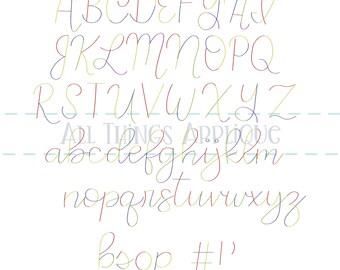 ABCDEFGHI
JKLMNOPQ
RSTUVWXYZ
All Things Applique
abcdefghijklm
nopqrstuvwxyz
bsop #1'